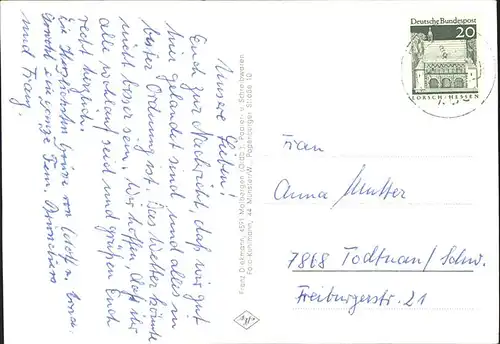 Unsere Lieben!
Euch zur Nachricht, daß wir gut
hier gelandet sind und alles in
bester Ordnung ist. Das Wetter könnte
nicht besser sein. Wir hoffen, daß ihr
alle wohlauf seid und grüßen Euch
recht herzlich.
Die herzlichsten Grüße von
und Franz.
Franz Diekmann, 4591 Molbergen (Oldb.), Papier- u. Schreibwaren
Foto-Kuhlmann, 44 Münster/W., Papenburger Straße 10
Deutsche Bundespost
20
LORSCH/HESSEN
Frau
Anna Mutter
7868 Todtnau/Schw.
Freiburgerstr. 21